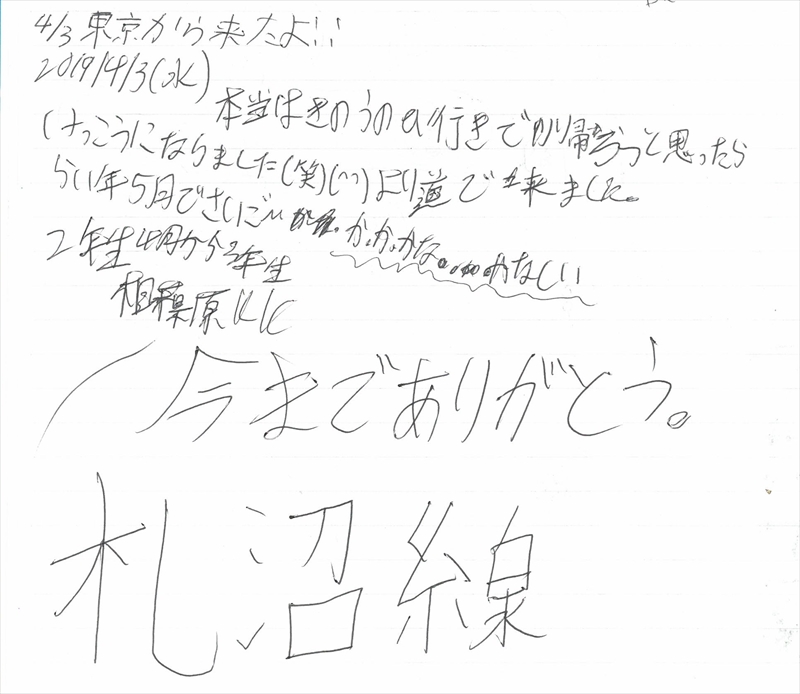 4/3 東京から来たよ!!
2019/4/3(水)
本当はきのうの 行きで 帰ろうと思ったら
けっこうになりました(笑)(^^)より道で来ました。
らい年5月でさいご か,か,かな。...かなしい
2年生 4月から 年生
相模原 K
今までありがとう。
札沼線